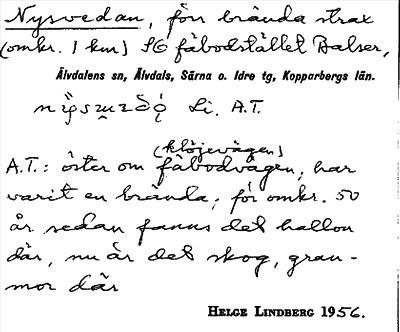 Nysvedan, förr brända strax
(omkr. 1 km) SO fäbodstället Balser,
Älvdalens sn, Älvdals, Särna o. Idre tg, Kopparbergs län.
Li. A.T.
(klöjevägen)
A.T.: öster om fäbodvägen, har
varit en brända; för omkr. 50
år sedan fanns det hallon
där, nu är det skog, gran-
mor där
HELGE LINDBERG 1956.